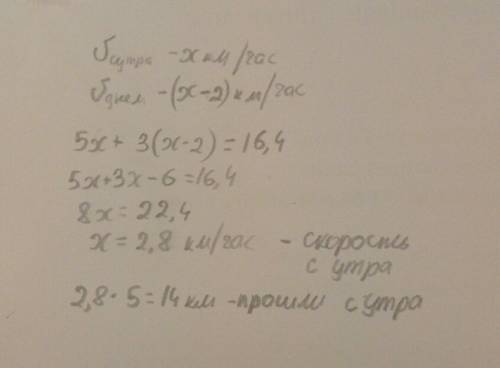 Vутра - x км/час
Vднем - (x-2) км/час
5x + 3(x-2) = 16,4
5x+3x-6=16,4
8x = 22,4
x = 2,8 км/час - скорость
с утра
2,8 · 5 = 14 км - прошли с утра